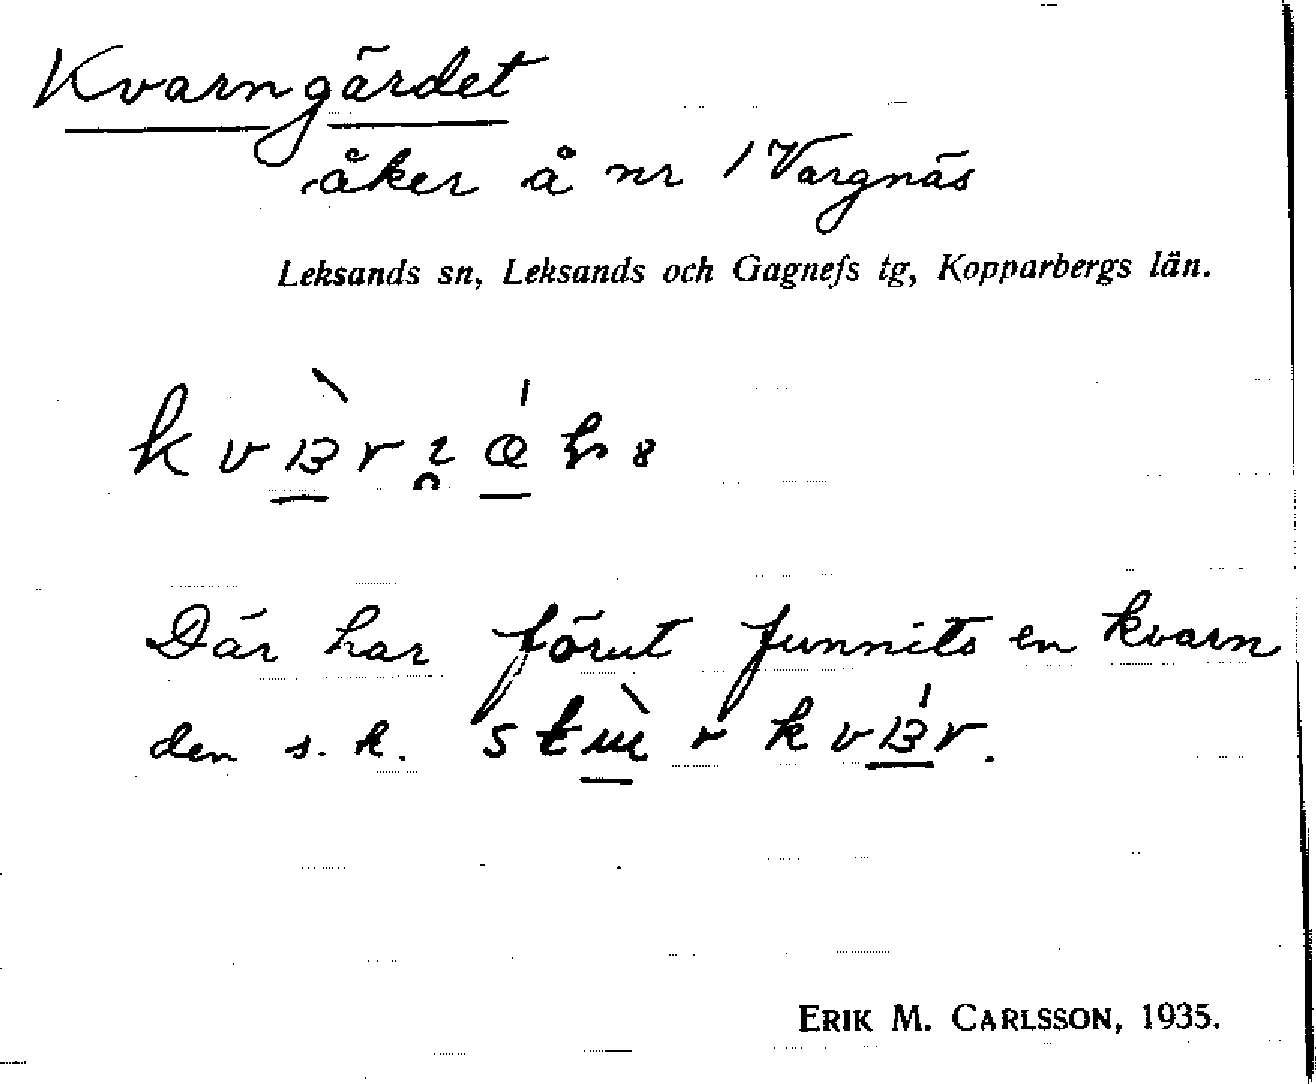 Kvarngärdet
åker å nr 1 Vargnäs
Leksands sn, Leksands och Gagnefs tg, Kopparbergs län.
Där har förut funnits en kvarn
den s. k.
ERIK M. CARLSSON, 1935.